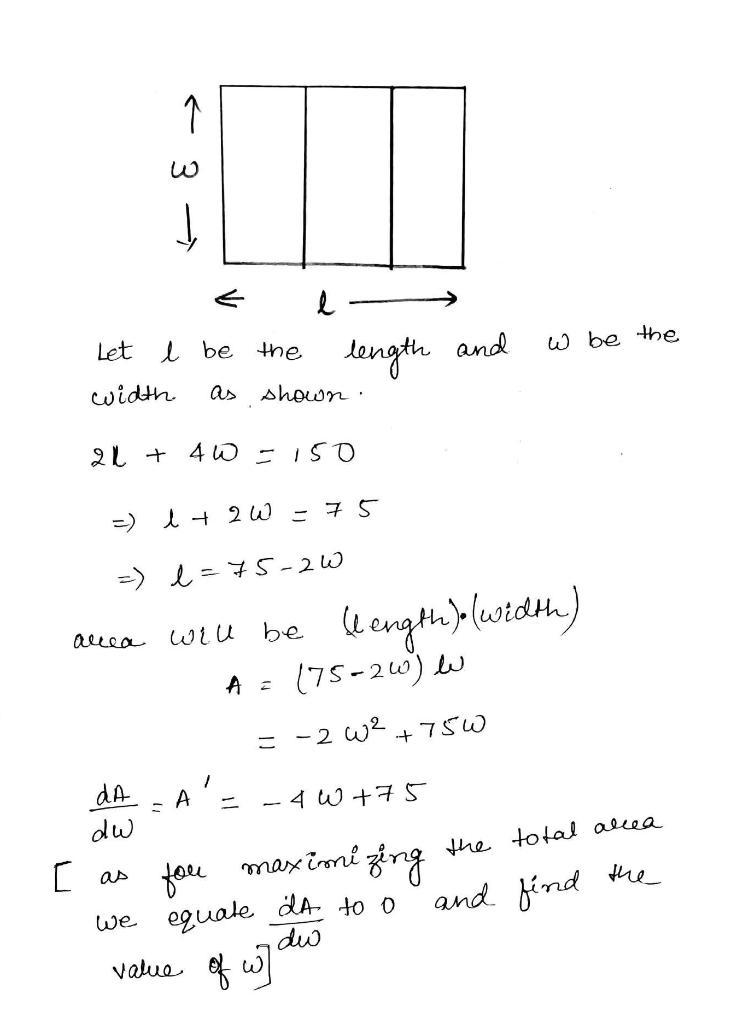 w
l
Let l be the length and w be the
width as shown.
2l + 4w = 150
=> l + 2w = 75
=> l = 75 - 2w
area will be (length)·(width)
A = (75 - 2w) w
= -2w² + 75w
dA/dw = A' = -4w + 75
[ as for maximizing the total area
we equate dA/dw to 0 and find the
value of w]